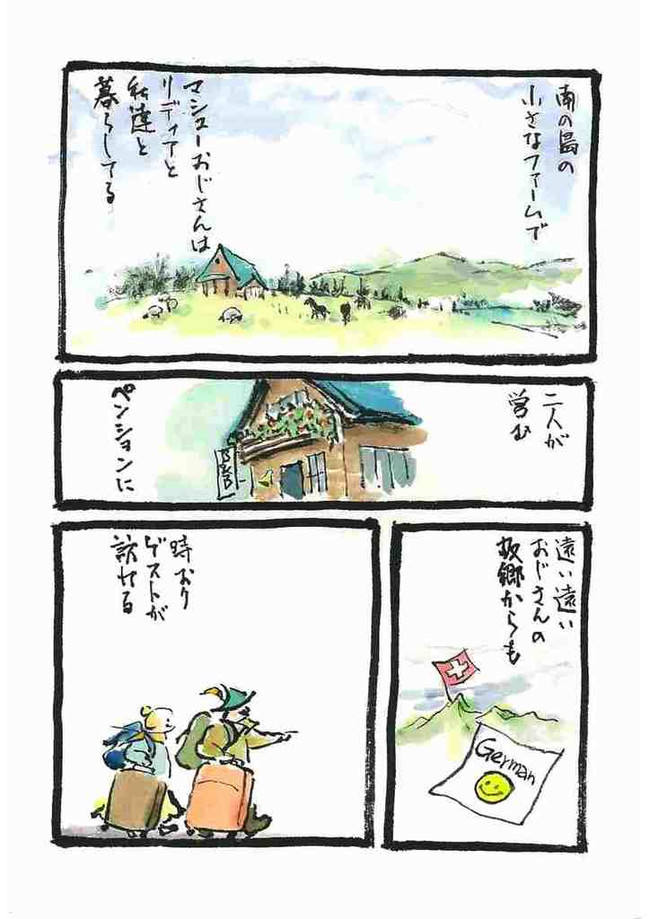 南の島の
小さなファームで
マシューおじさんは
リディアと
私達と
暮らしてる
二人が
営む
B&B
ペンションに
遠い遠い
おじさんの
故郷からも
German
時おり
ゲストが
訪れる